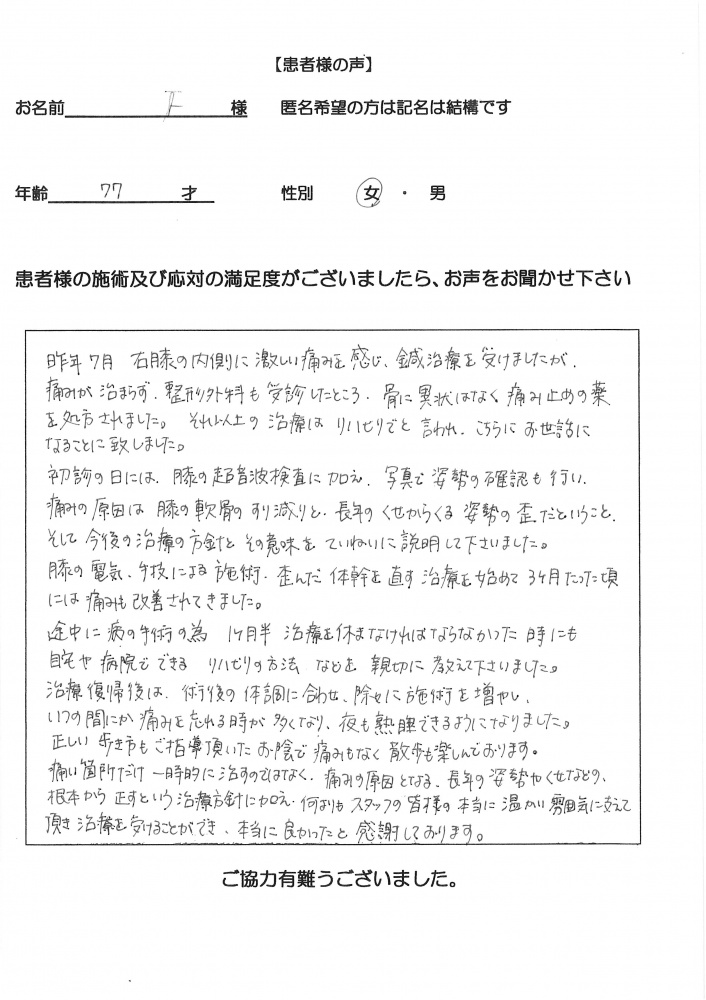 【患者様の声】
お名前 下 様 匿名希望の方は記名は結構です
年齢 77 才 性別 女 ・ 男
患者様の施術及び応対の満足度がございましたら、お声をお聞かせ下さい
昨年7月 右膝の内側に激しい痛みを感じ、鍼治療を受けましたが、
痛みが治まらず、整形外科も受診したところ、骨に異状はなく痛み止めの薬
を処方されました。それ以上の治療はリハビリでと言われ、こちらにお世話に
なることに致しました。
初診の日には、膝の超音波検査に加え、写真で姿勢の確認も行い、
痛みの原因は膝の軟骨のすり減りと、長年のくせからくる姿勢の歪だということ、
そして今後の治療の方針とその意味をていねいに説明して下さいました。
膝の電気、手技による施術、歪んだ体幹を直す治療を始めて3ヶ月たった頃
には痛みも改善されてきました。
途中に病の手術の為 1ヶ月半 治療を休まなければならなかった時にも
自宅や病院でできる リハビリの方法 などを 親切に教えて下さいました。
治療復帰後は、術後の体調に合わせ、除々に施術を増やし、
いつの間にか痛みを忘れる時が多くなり、夜も熟睡できるようになりました。
正しい歩き方もご指導頂いたお陰で痛みもなく散歩も楽しんでおります。
痛い箇所だけ一時的に治すのではなく、痛みの原因となる、長年の姿勢やくせなどの、
根本から正すという治療方針に加え、何よりもスタッフの皆様の本当に温かい雰囲気に支えて
頂き治療を受けることができ、本当に良かったと感謝しております。
ご協力有難うございました。